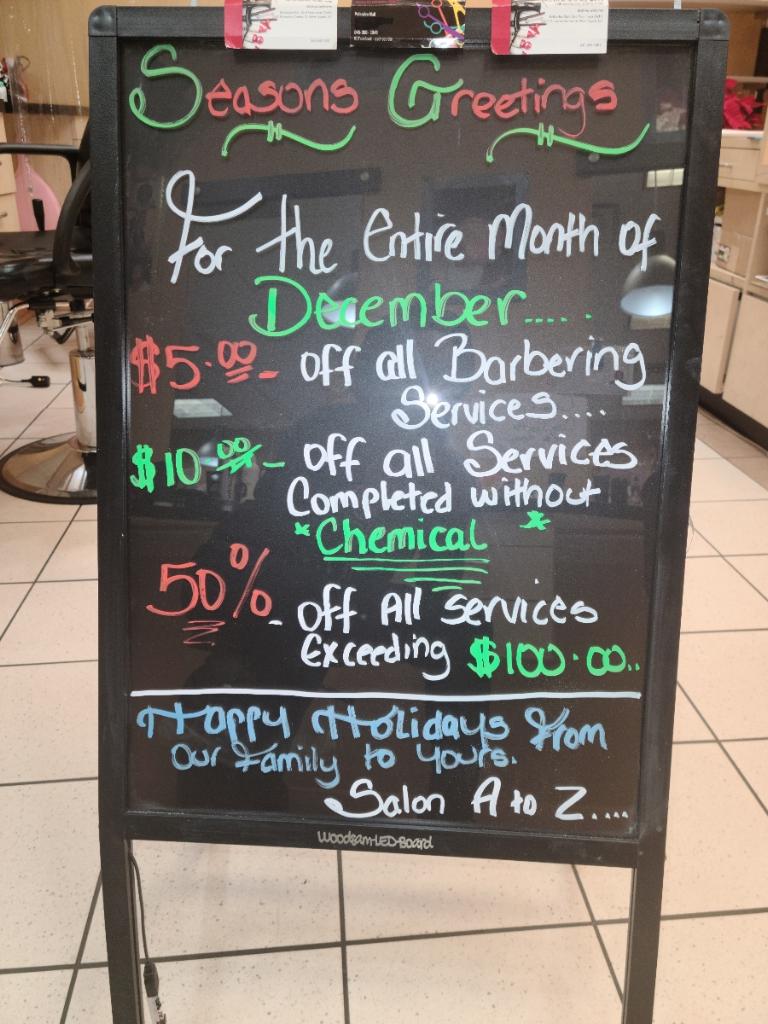 Seasons Greetings
For the Entire Month of
December.....
$5.00 - off all Barbering
Services....
$10.00 - off all Services
Completed without
*Chemical*
50% - off All services
Exceeding $100.00..
Happy Holidays From
Our Family to yours.
Salon A to Z....
Woodsam-LED-Board